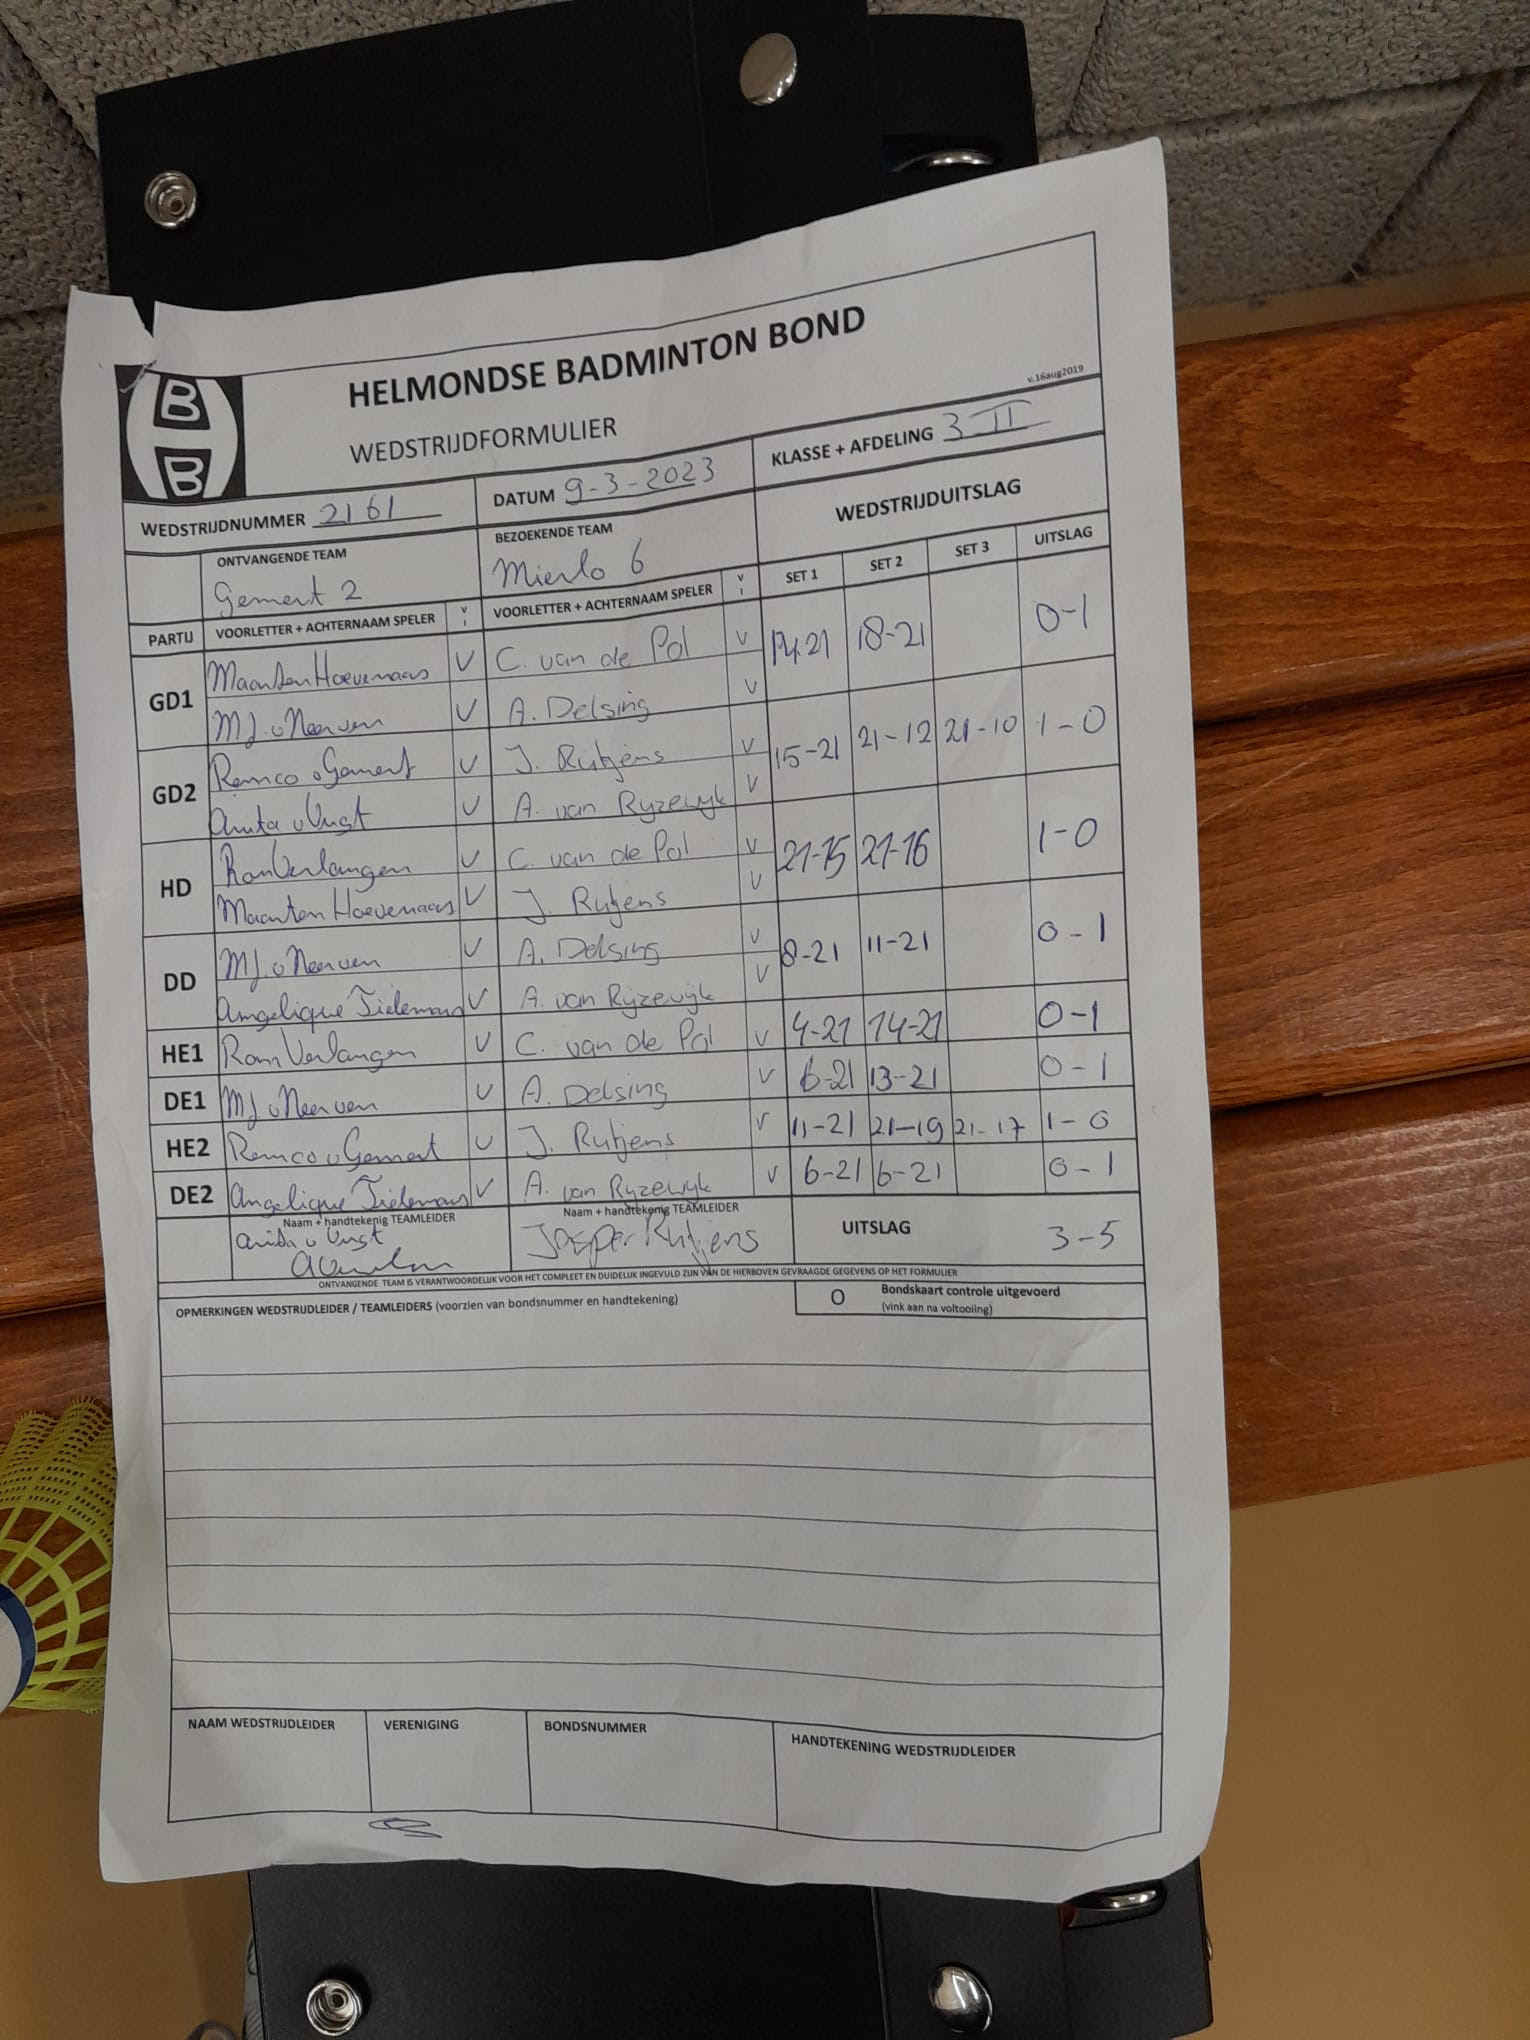 HELMONDSE BADMINTON BOND
B
B
WEDSTRIJDFORMULIER
v.16aug2019
WEDSTRIJDNUMMER 2161 DATUM 9-3-2023 KLASSE + AFDELING 3 II
ONTVANGENDE TEAM BEZOEKENDE TEAM WEDSTRIJDUITSLAG
Gemert 2 Mierlo 6 SET 1 SET 2 SET 3 UITSLAG
PARTIJ VOORLETTER + ACHTERNAAM SPELER V I VOORLETTER + ACHTERNAAM SPELER V I
GD1 Maarten Hoevenaars V C. van de Pol V 14-21 18-21 0-1
MJ. v Neerven V A. Delsing V
GD2 Remco v Gemert V J. Rutjens V 15-21 21-12 21-10 1-0
Anita v Vugt V A. van Rijzewijk V
HD Ron Verlangen V C. van de Pol V 21-15 21-16 1-0
Maarten Hoevenaars V J. Rutjens V
DD MJ. v Neerven V A. Delsing V 8-21 11-21 0-1
Angelique Tielemans V A. van Rijzewijk V
HE1 Ron Verlangen V C. van de Pol V 4-21 14-21 0-1
DE1 MJ v Neerven V A. Delsing V 6-21 13-21 0-1
HE2 Remco v Gemert V J. Rutjens V 11-21 21-19 21-17 1-0
DE2 Angelique Tielemans V A. van Rijzewijk V 6-21 6-21 0-1
Naam + handtekenig TEAMLEIDER Naam + handtekenig TEAMLEIDER UITSLAG 3-5
Anita v Vugt Jasper Rutjens
ONTVANGENDE TEAM IS VERANTWOORDELIJK VOOR HET COMPLEET EN DUIDELIJK INGEVULD ZIJN VAN DE HIERBOVEN GEVRAAGDE GEGEVENS OP HET FORMULIER
OPMERKINGEN WEDSTRIJDLEIDER / TEAMLEIDERS (voorzien van bondsnummer en handtekening) O Bondskaart controle uitgevoerd
(vink aan na voltooiing)
NAAM WEDSTRIJDLEIDER VERENIGING BONDSNUMMER HANDTEKENING WEDSTRIJDLEIDER